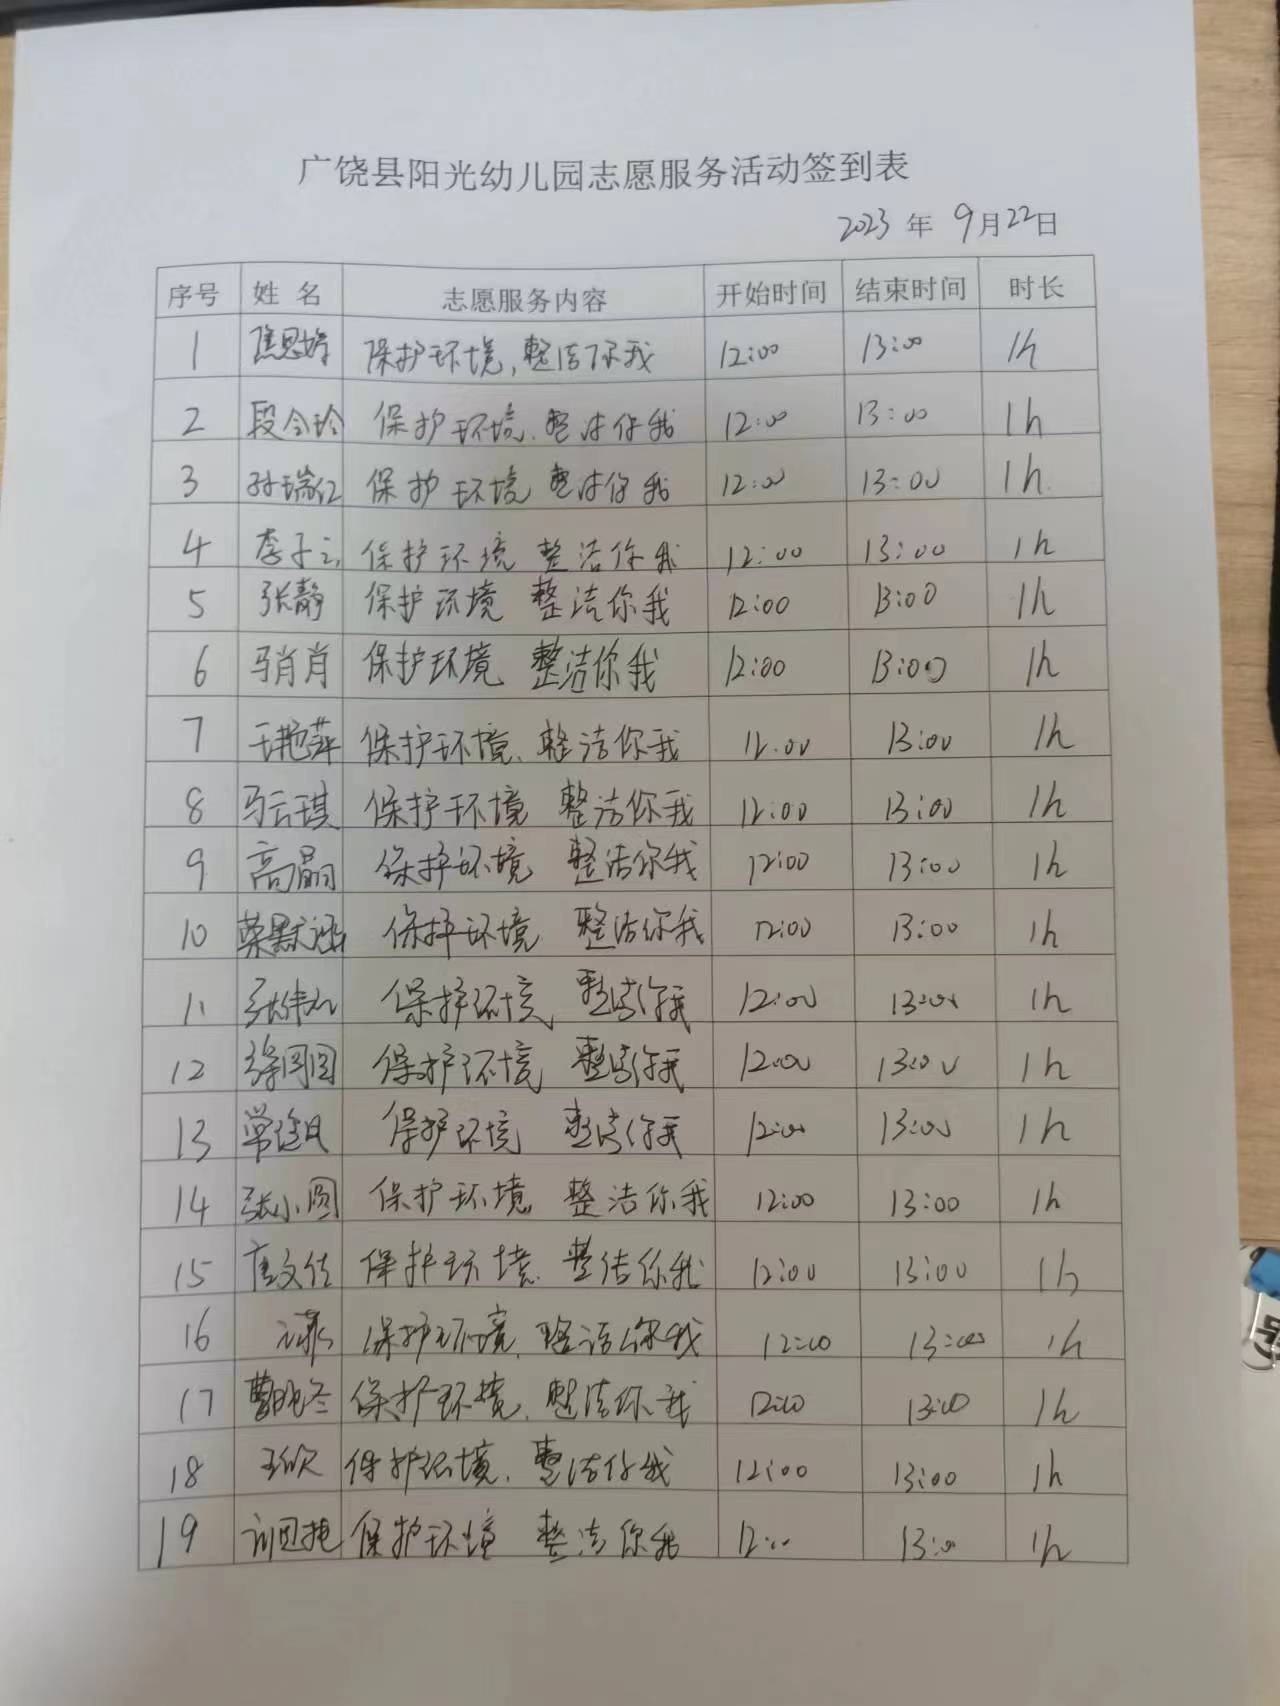 广饶县阳光幼儿园志愿服务活动签到表
2023 年 9月22日
序号 姓名 志愿服务内容 开始时间 结束时间 时长
1 保护环境,整洁你我 12:00 13:00 1h
2 段令玲 保护环境、整洁你我 12:00 13:00 1h
3 孙瑞红 保护环境 整洁你我 12:00 13:00 1h.
4 李子云 保护环境 整洁你我 12:00 13:00 1h
5 张静 保护环境 整洁你我 12:00 13:00 1h
6 马肖肖 保护环境 整洁你我 12:00 13:00 1h
7 王艳萍 保护环境、整洁你我 12.00 13:00 1h
8 马云琪 保护环境 整洁你我 12:00 13:00 1h
9 高晶 保护环境 整洁你我 12:00 13:00 1h
10 保护环境 整洁你我 12:00 13:00 1h
11 保护环境 整洁你我 12:00 13:00 1h
12 保护环境 整洁你我 12:00 13:00 1h
13 保护环境 整洁你我 12:00 13:00 1h
14 张小圆 保护环境 整洁你我 12:00 13:00 1h
15 保护环境. 整洁你我 12:00 13:00 1h
16 保护环境. 整洁你我 12:00 13:00 1h
17 保护环境. 整洁你我 12:00 13:00 1h
18 王欣 保护环境. 整洁你我 12:00 13:00 1h
19 保护环境 整洁你我 12:00 13:00 1h